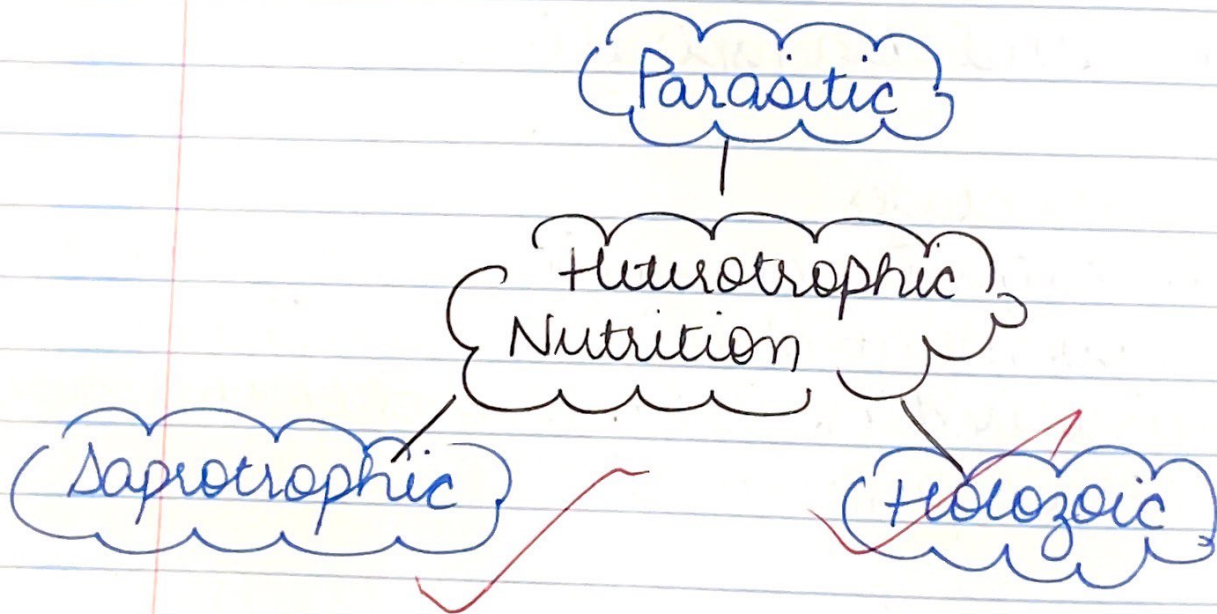 Parasitic
Heterotrophic
Nutrition
Saprotrophic
Holozoic